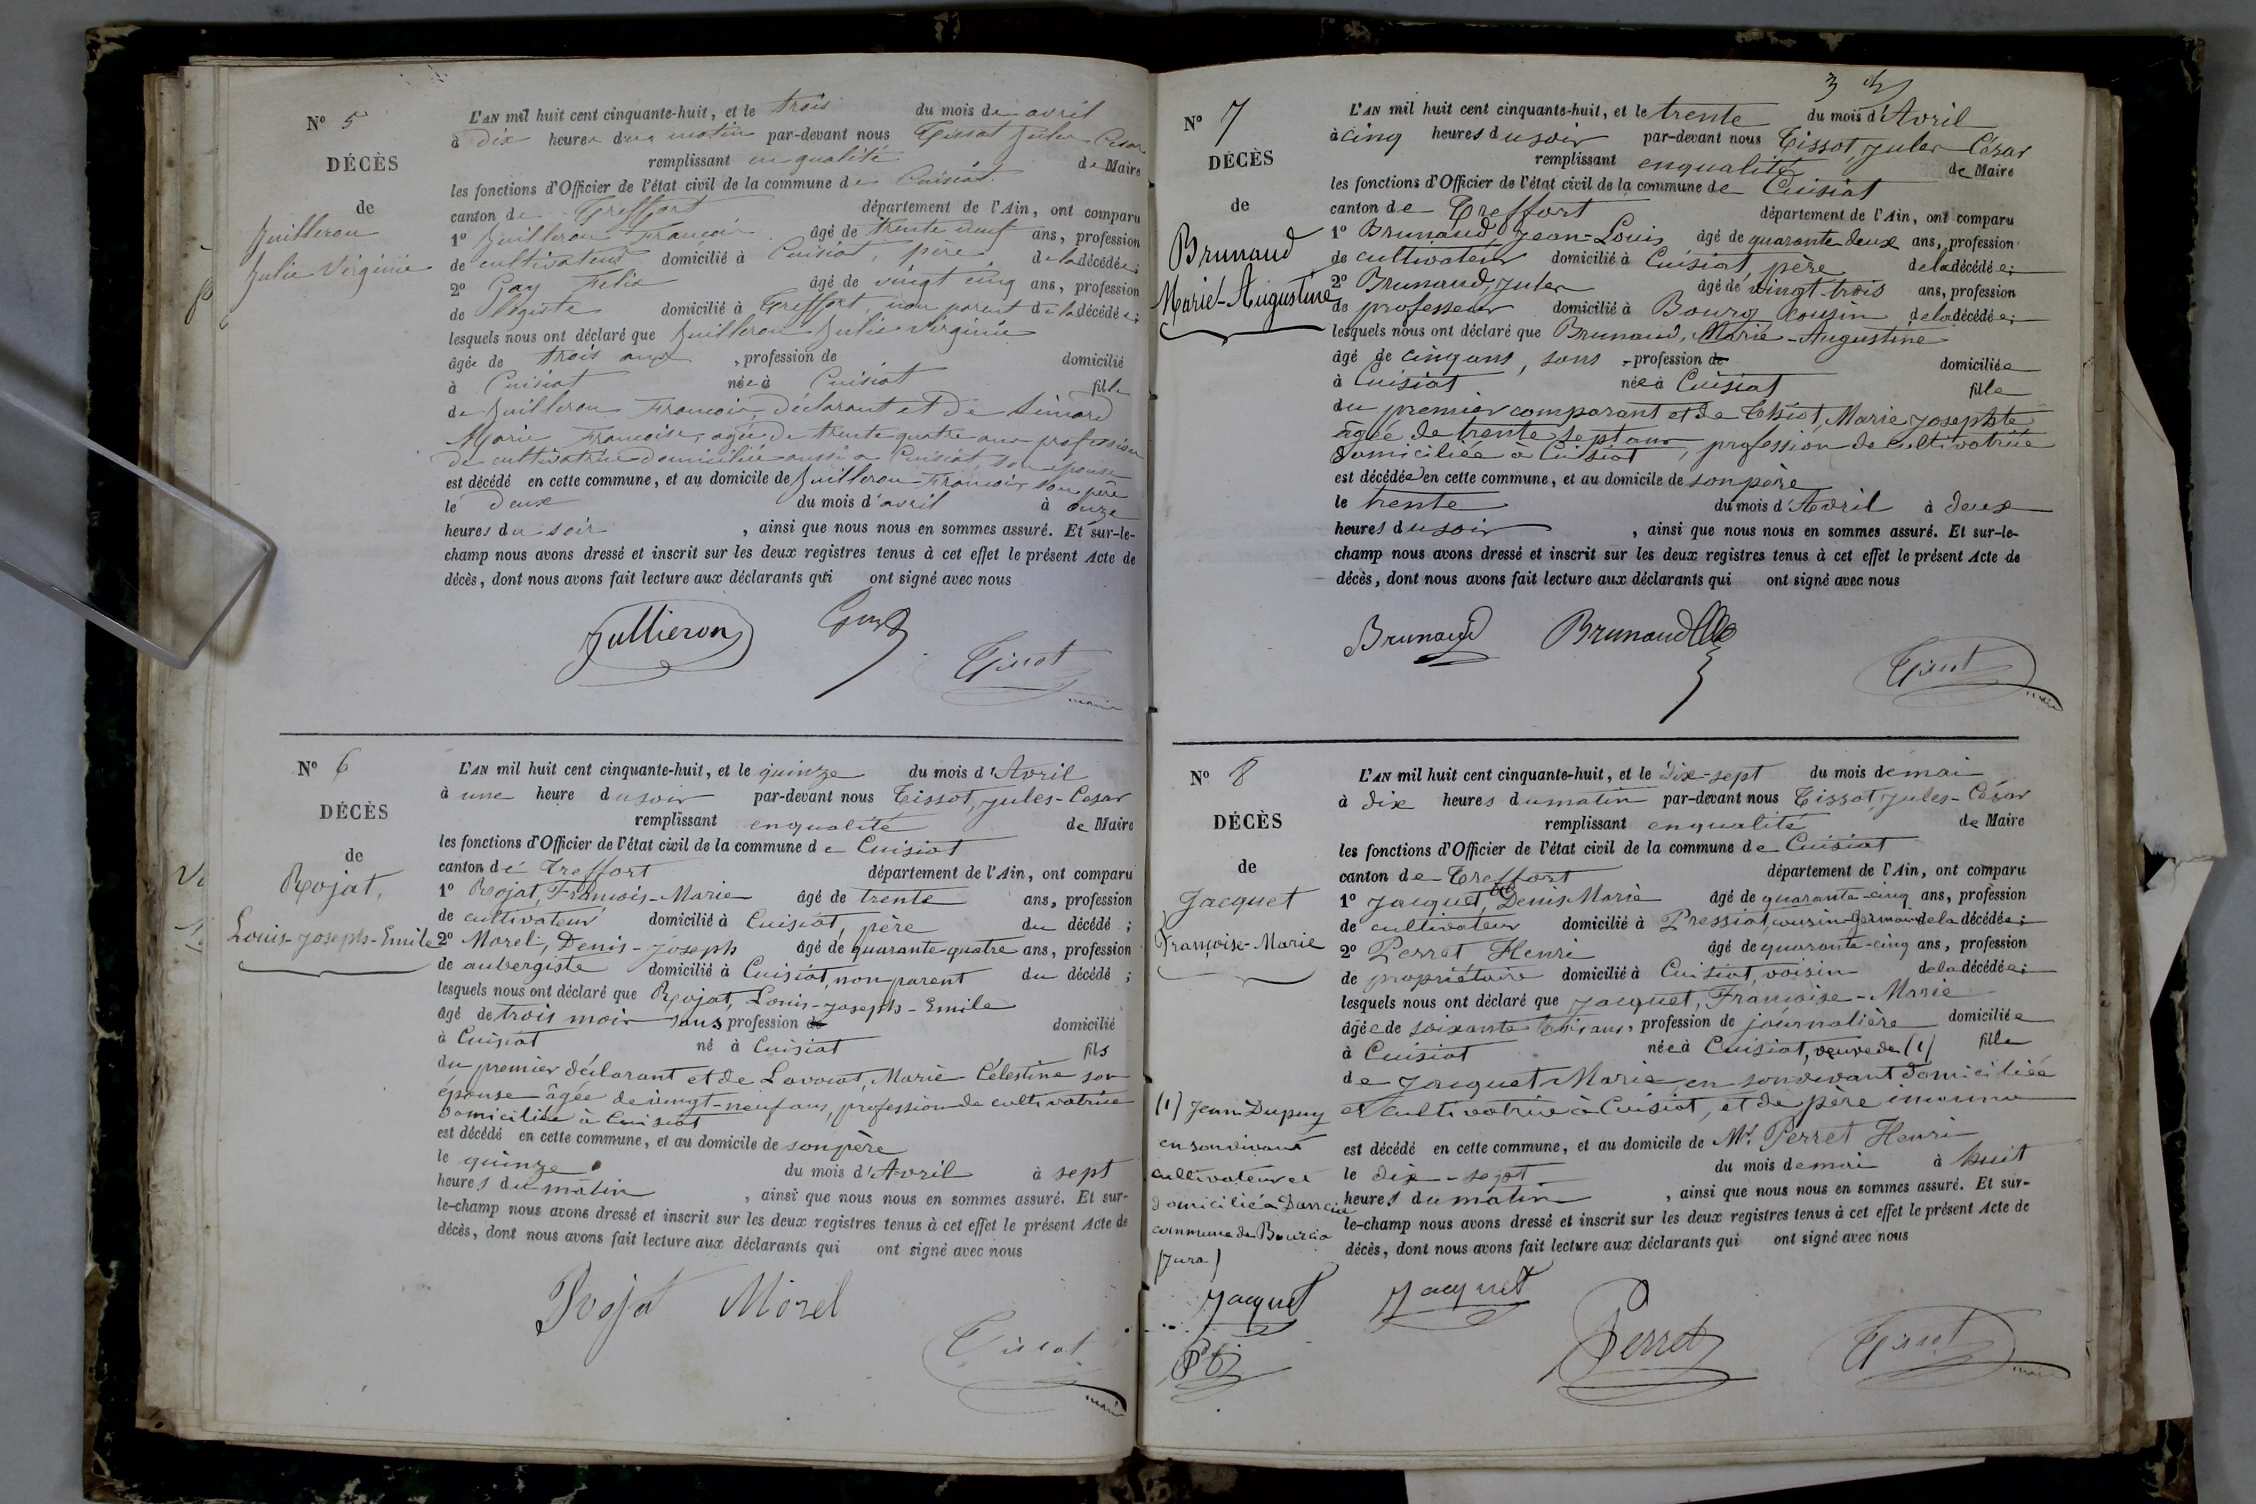 N° 5
DÉCÈS
de
Juilleron
Julie Virginie
L'AN mil huit cent cinquante-huit, et le trois du mois de avril
à dix heures du matin par-devant nous Tissot Jules César
remplissant en qualité de Maire
les fonctions d'Officier de l'état civil de la commune de Cuisiat
canton de Treffort département de l'Ain, ont comparu
1° Juilleron François âgé de trente neuf ans, profession
de cultivateur domicilié à Cuisiat, père de la décédée;
2° Gay Felix âgé de vingt cinq ans, profession
de légiste domicilié à Treffort, non parent de la décédée;
lesquels nous ont déclaré que Juilleron Julie Virginie
âgée de trois ans, profession de domicilié
à Cuisiat née à Cuisiat fille
de Juilleron François, déclarant et de
Marie Françoise, agée de trente quatre ans profession
de cultivatrice domiciliée aussi a Cuisiat, son epouse
est décédé en cette commune, et au domicile de Juilleron François son père
le deux du mois d'avril à onze
heures du soir, ainsi que nous nous en sommes assuré. Et sur-le-
champ nous avons dressé et inscrit sur les deux registres tenus à cet effet le présent Acte de
décès, dont nous avons fait lecture aux déclarants qui ont signé avec nous
Jullieron Gay
Tissot
maire
N° 6
DÉCÈS
de
Rojat,
Louis-Joseph-Emile
L'AN mil huit cent cinquante-huit, et le quinze du mois d'Avril
à une heure du soir par-devant nous Tissot, Jules-Cesar
remplissant en qualité de Maire
les fonctions d'Officier de l'état civil de la commune de Cuisiat
canton de Treffort département de l'Ain, ont comparu
1° Rojat, François-Marie âgé de trente ans, profession
de cultivateur domicilié à Cuisiat, père du décédé;
2° Morel, Denis-Joseph âgé de quarante-quatre ans, profession
de aubergiste domicilié à Cuisiat, non parent du décédé;
lesquels nous ont déclaré que Rojat, Louis-Joseph-Emile
âgé de trois mois sans profession de domicilié
à Cuisiat né à Cuisiat fils
du premier déclarant et de Lavocat, Marie-Célestine son
épouse âgée de vingt-neuf ans, profession de cultivatrice
domiciliée à Cuisiat
est décédé en cette commune, et au domicile de son père
le quinze du mois d'Avril à sept
heures du matin, ainsi que nous nous en sommes assuré. Et sur-
le-champ nous avons dressé et inscrit sur les deux registres tenus à cet effet le présent Acte de
décès, dont nous avons fait lecture aux déclarants qui ont signé avec nous
Rojat Morel
Tissot
maire
3
N° 7
DÉCÈS
de
Brunaud
Marie-Augustine
L'AN mil huit cent cinquante-huit, et le trente du mois d'Avril
à cinq heures du soir par-devant nous Tissot, Jules César
remplissant en qualité de Maire
les fonctions d'Officier de l'état civil de la commune de Cuisiat
canton de Treffort département de l'Ain, ont comparu
1° Brunaud Jean-Louis âgé de quarante deux ans, profession
de cultivateur domicilié à Cuisiat, père de la décédée;
2° Brunaud, Jules âgé de vingt-trois ans, profession
de professeur domicilié à Bourg cousin de la décédée;
lesquels nous ont déclaré que Brunaud, Marie-Augustine
âgé de cinq ans, sans profession de domiciliée
à Cuisiat née à Cuisiat fille
du premier comparant et de Marie Josephte
âgée de trente sept ans, profession de cultivatrice
domiciliée à Cuisiat
est décédée en cette commune, et au domicile de son père
le trente du mois d'Avril à deux
heures du soir, ainsi que nous nous en sommes assuré. Et sur-le-
champ nous avons dressé et inscrit sur les deux registres tenus à cet effet le présent Acte de
décès, dont nous avons fait lecture aux déclarants qui ont signé avec nous
Brunaud Brunaud
Tissot
maire
N° 8
DÉCÈS
de
Jacquet
Françoise-Marie
L'AN mil huit cent cinquante-huit, et le dix-sept du mois de mai
à dix heures du matin par-devant nous Tissot, Jules-César
remplissant en qualité de Maire
les fonctions d'Officier de l'état civil de la commune de Cuisiat
canton de Treffort département de l'Ain, ont comparu
1° Jacquet, Denis Marie âgé de quarante-cinq ans, profession
de cultivateur domicilié à Pressiat, cousin germain de la décédée;
2° Perret Henri âgé de quarante-cinq ans, profession
de propriétaire domicilié à Cuisiat, voisin de la décédée;
lesquels nous ont déclaré que Jacquet, Françoise-Marie
âgée de soixante trois ans, profession de journalière domiciliée
à Cuisiat née à Cuisiat, veuve de (1) fille
de Jacquet Marie en son vivant domiciliée
et cultivatrice à Cuisiat, et de père inconnu
est décédé en cette commune, et au domicile de Mr. Perret Henri
le dix-sept du mois de mai à huit
heures du matin, ainsi que nous nous en sommes assuré. Et sur-
le-champ nous avons dressé et inscrit sur les deux registres tenus à cet effet le présent Acte de
décès, dont nous avons fait lecture aux déclarants qui ont signé avec nous
(1) Jean Dupuy
en son vivant
cultivateur et
domicilié à
commune de Bourcia
(Jura)
Jacquet
Jacquet
Perret
Tissot
maire